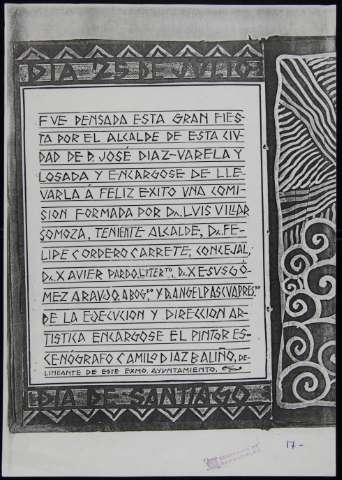 DIA-25 DE JULIO
FVE PENSADA ESTA GRAN FIES-
TA POR EL ALCALDE DE ESTA CIV-
DAD DE D. JOSÉ DIAZ-VARELA Y
LOSADA Y ENCARGOSE DE LLE-
VARLA Á FELIZ EXITO VNA COMI-
SION FORMADA POR Dn. LVIS VILLAR
SOMOZA, TENIENTE ALCALDE, Dn. FE-
LIPE CORDERO CARRETE, CONCEJAL,
Dn. XAVIER PARDO, LITERTo, D. XESUS GÓ-
MEZ ARAUJO, ABOGdo Y D. ANGEL PASCV
DE LA EJECUCION Y DIRECCION AR-
TISTICA ENCARGOSE EL PINTOR ES-
CENÓGRAFO CAMILO DIAZ BALIÑO, DE-
LINEANTE DE ESTE EXMO. AYUNTAMIENTO.
DIA DE SANTIAGO
17-